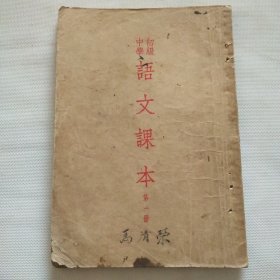 初級中學
語文課本
第一冊
馬清榮